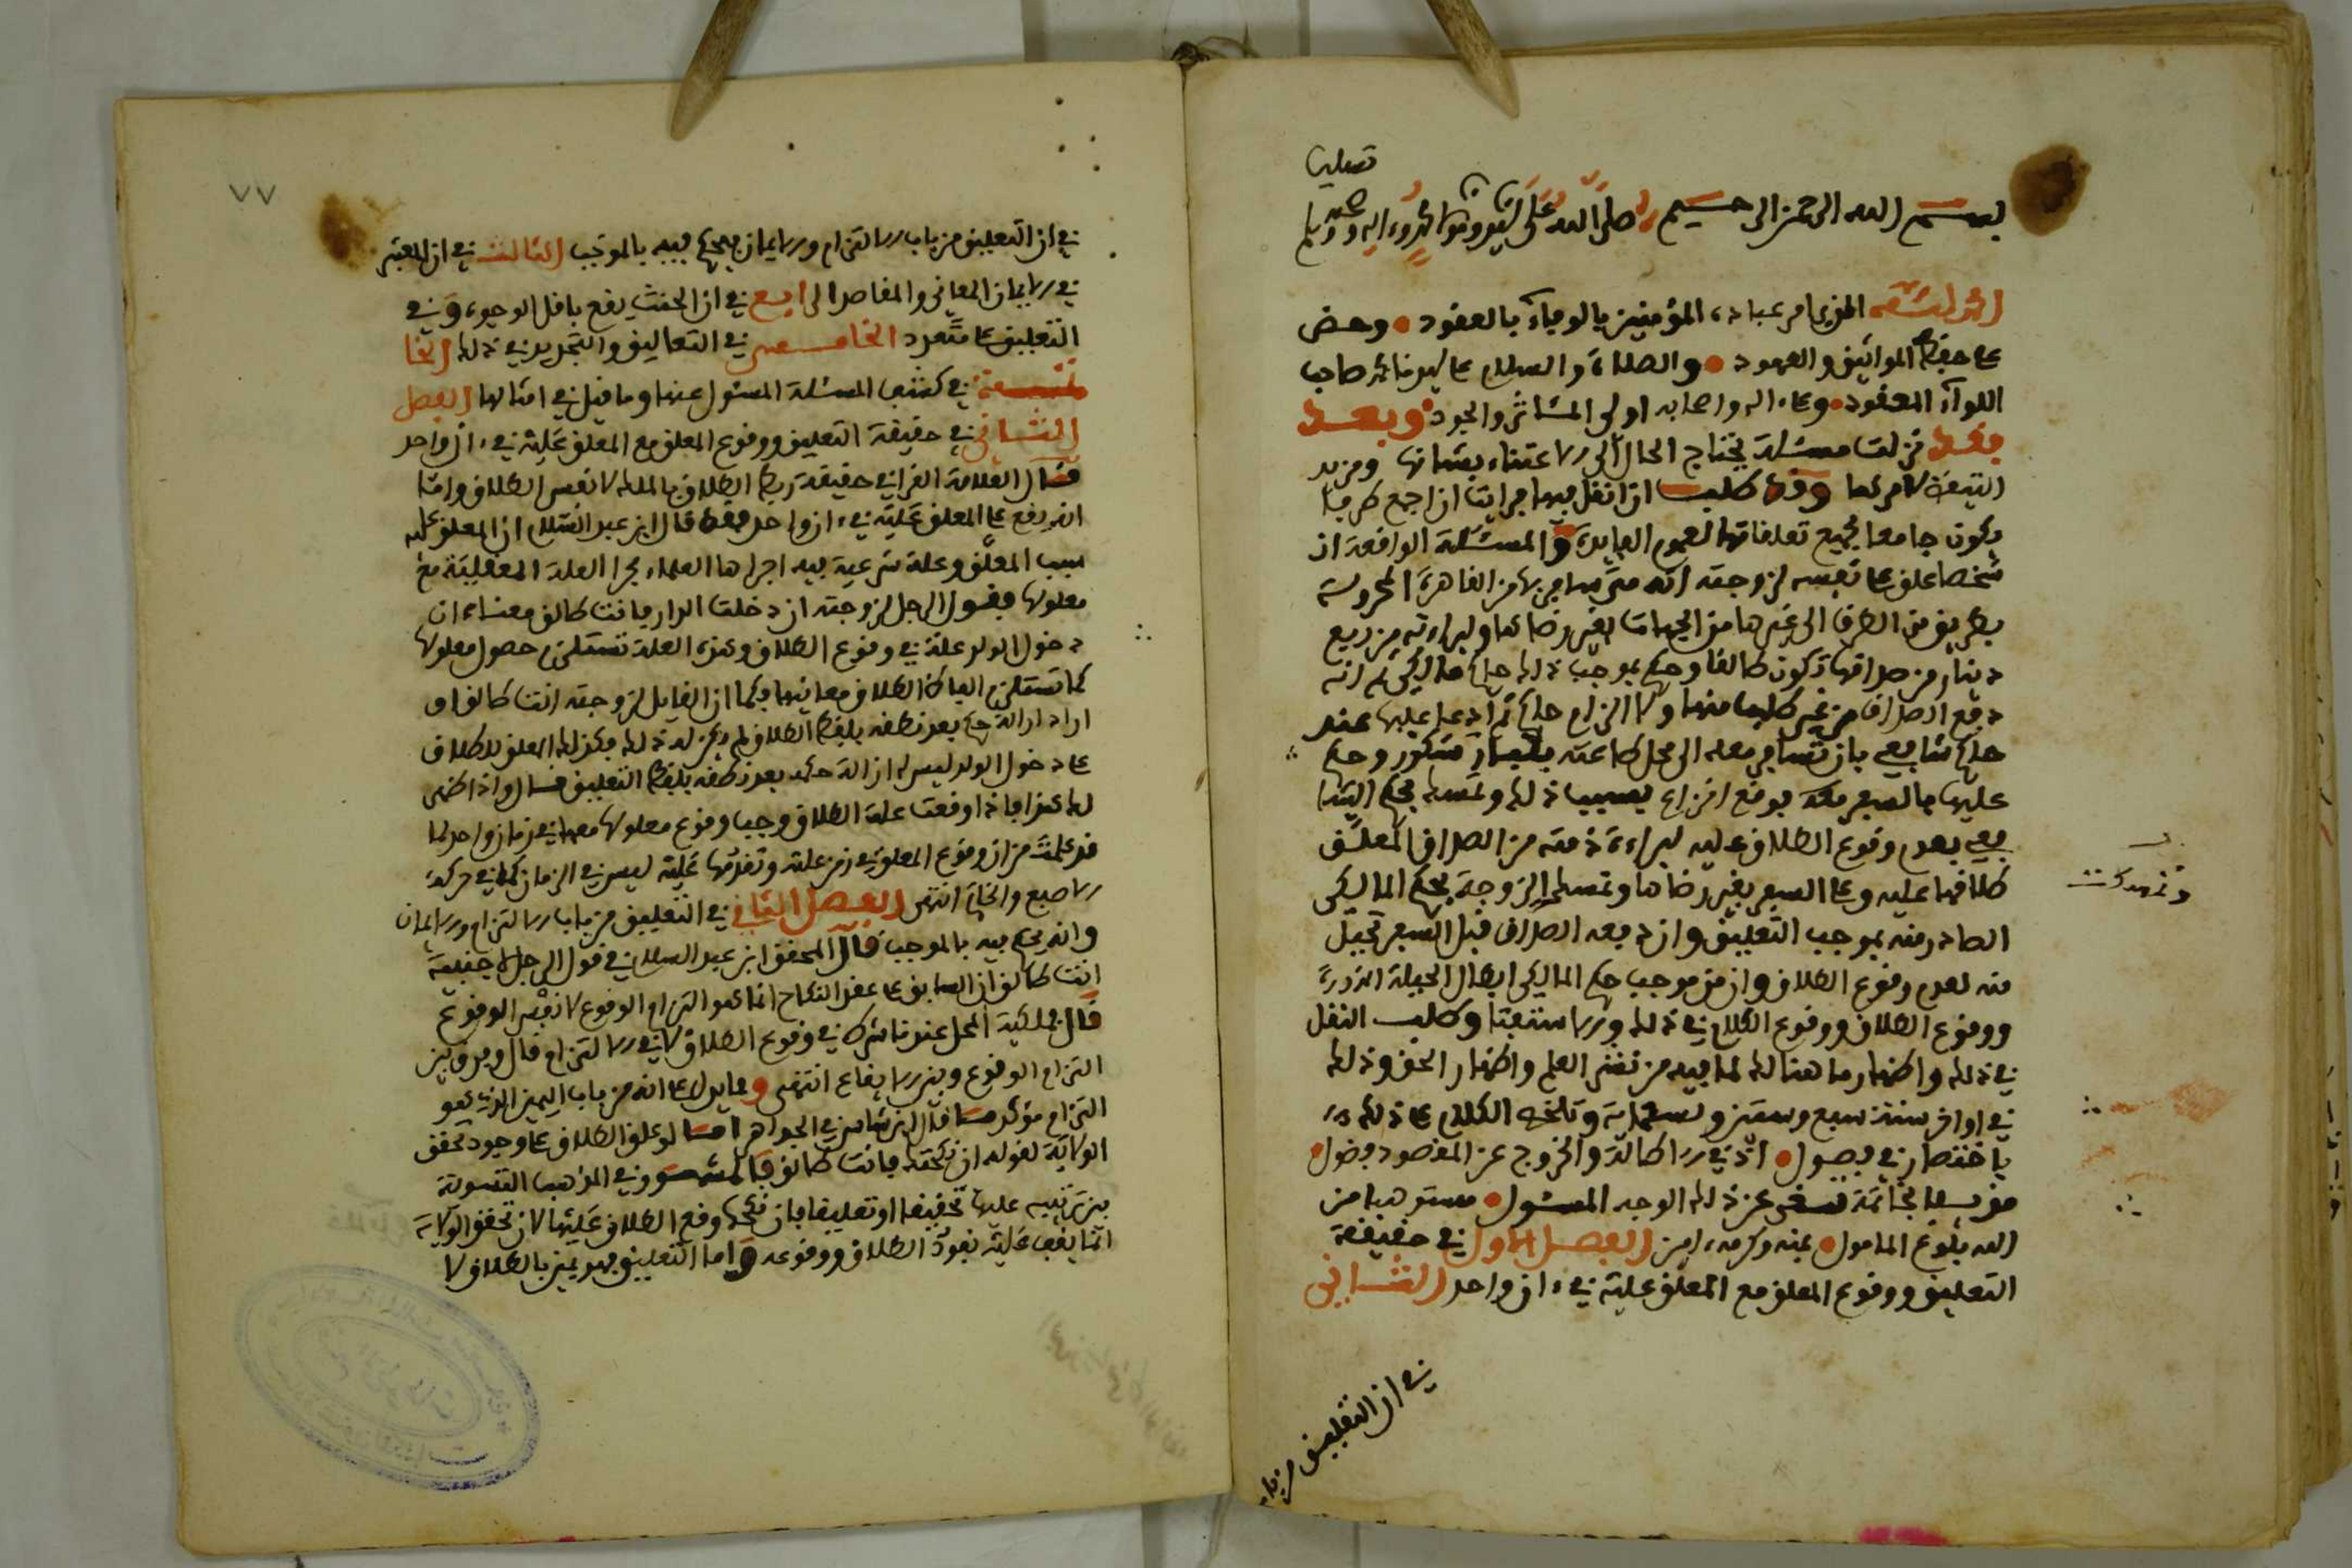 بسم الله الرحمن الرحيم صلى الله على سيدنا ومولانا محمد وءاله وصحبه وسلم تسليما
الحمد لله الذي امر عباده المؤمنين بالوفآء بالعقود وحض
على حفظ المواثيق والعهود والصلاة والسلام على سيدنا محمد صاحب
اللوآء المعقود وعلى ءاله واصحابه اولى المئاثر والجود وبعد
فقد نزلت مسئلة يحتاج الحال الى الاعتناء بشانها ومزيد
لامرها وقد طلب ان انظر فيها فرايت ان اجمع طرفا
يكون جامعا لجميع تعلقاتها لعموم الفايدة والمسئلة الواقعة ان
شخصا علق على نفسه لزوجته انه متى سافر بها من القاهرة المحروسة
بطريق من الطرق الى غيرها من الجهات بغير رضائها ولبراءته من ربع
دينار من صداقها تكون طالقا وحكم بموجب ذلك حاكم مالكي ثم انه
دفع الصداق من غير طلب منها ولا الزام حاكم ثم ادعى عليها عند
حاكم شافعي بان تسافر معه الى محل طاعته وحكم
عليها بالسفر معه فوقع نزاع بسبب ذلك وتمسك بحكم الشا
فعي بعدم وقوع الطلاق عليه لبراءة ذمته من الصداق المعلق
طلاقها عليه وعلى السفر بغير رضاها وتمسك الزوجة بحكم المالكي
الصادر منه بموجب التعليق وان دفعه الصداق قبل السفر تحيل
منه لعدم وقوع الطلاق وان من موجب حكم المالكي ابطال الحيلة
ووقوع الطلاق ووقوع الكلام في ذلك والاستفتا وطلب النقل
في ذلك واظهار ما هنالك لما فيه من نشر العلم واظهار الحق وذلك
في اواخر سنة سبع وستين وتسعماية وتلخص الكلام على ذلك
باختصار في فصول اذ في الاطالة والخروج عن المقصود فضول
بخاتمة تسفر عن ذلك الوجه المسئول مستوهبا من
الله بلوغ المامول بمنه وكرمه ءامين الفصل الاول في حقيقة
التعليق ووقوع المعلق مع المعلق عليه في ءان واحد الثاني
في ان التعليق من باب
٧٧
في ان التعليق من باب الالتزام والايمان فيحكم فيه بالموجب الثالث في ان المعتبر
في الايمان المعاني والمقاصد الرابع في ان الحنث يقع باقل الوجوه وفي
التعليق على متعدد الخامس في التعاليق والتجديد في ذلك الخا
تمة في كشف المسئلة المسئول عنها وما قيل في امثالها الفصل
في حقيقة التعليق ووقوع المعلق مع المعلق عليه في ءان واحد
قال العلامة القرافي حقيقة ربط الطلاق بالملك لا نفس الطلاق وانما
على المعلق عليه في ءان واحد فقد قال ابن عبد السلام ان المعلق عليه
سبب المعلق وعلة شرعية فيه اجراها العلماء مجرا العلة العقلية مع
معلولها فقول الرجل لزوجته ان دخلت الدار فانت طالق معناه ان
دخول الدار علة في وقوع الطلاق وهذه العلة تستلزم حصول معلولها
كما تستلزم الفاظ الطلاق معانيها فكما ان القايل لزوجته انت طالق لو
اراد ازالة حكم بعد نطقه بلفظ الطلاق لم يكن له ذلك فكذلك المعلق للطلاق
على دخول الدار ليس له ازالة حكمه بعد نطقه بلفظ التعليق قال واذا ظهر
لك هذا فاذا وقعت علة الطلاق وجب وقوع معلولها معها في زمان واحد لما
قد علمت من ان وقوع المعلول في زمن علته وتقدمها عليه ليس في الزمان كما في حركة
الاصبع والخاتم انتهى الفصل الثاني في التعليق من باب الالتزام والايمان
وانه يحكم فيه بالموجب قال المحقق ابن عبد السلام في قول الرجل لاجنبية
انت طالق ان السابق على عقد النكاح انما هو التزام الوقوع لا نفس الوقوع
قال فملكية المحل عندنا شرط في وقوع الطلاق لا في الالتزام قال وفرق بين
التزام الوقوع وبين الايقاع انتهى ومما يدل على انه من باب اليمين الذي هو
التزام مؤكد ما قال ابن شاس في الجواهر لو علق الطلاق على وجود تحقق
الولاية لقوله ان نكحتك فانت طالق وفي المذهب التسوية
بين عليها تحقيقا او تعليقا فان نكحها وقع الطلاق عليها لان تحقق الولاية
انما يقف عليه نفوذ الطلاق ووقوعه واما التعليق فهو يمين بالطلاق لا